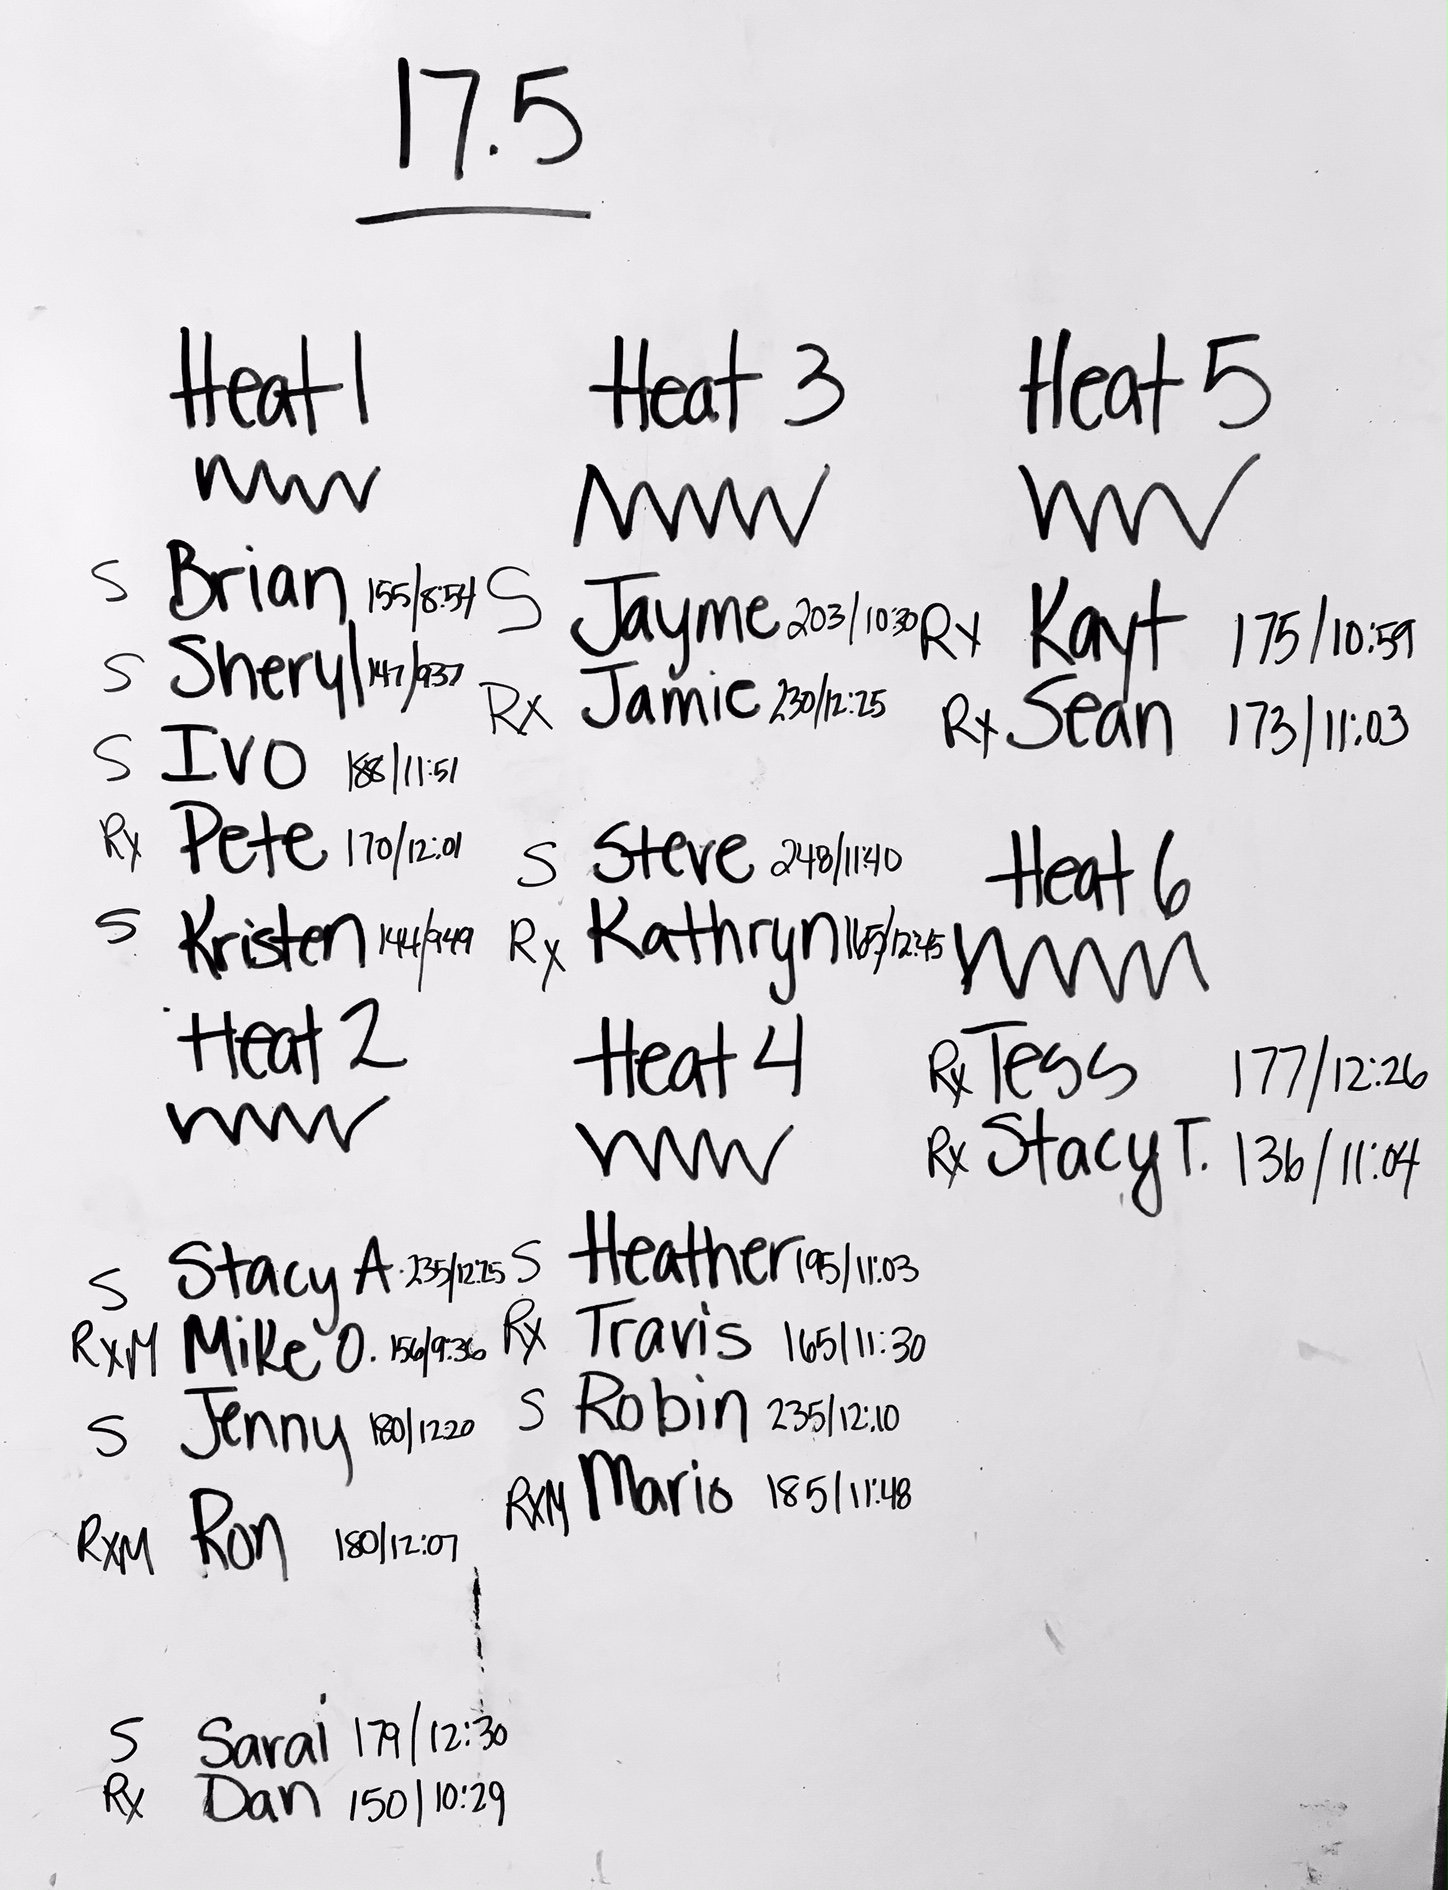 17.5
Heat 1
S Brian 155/8:54
S Sheryl 147/937
S Ivo 188/11:51
Rx Pete 170/12:01
S Kristen 144/949
Heat 2
S Stacy A. 235/12:25
RxM Mike O. 156/9:36
S Jenny 180/1220
RxM Ron 180/12:07
S Sarai 179/12:30
Rx Dan 150/10:29
Heat 3
S Jayme 203/10:30
Rx Jamie 230/12:25
S Steve 248/11:40
Rx Kathryn 165/12:45
Heat 4
S Heather 195/11:03
Rx Travis 165/11:30
S Robin 235/12:10
RxM Mario 185/11:48
Heat 5
Rx Kayt 175/10:59
Rx Sean 173/11:03
Heat 6
Rx Tess 177/12:26
Rx Stacy T. 136/11:04